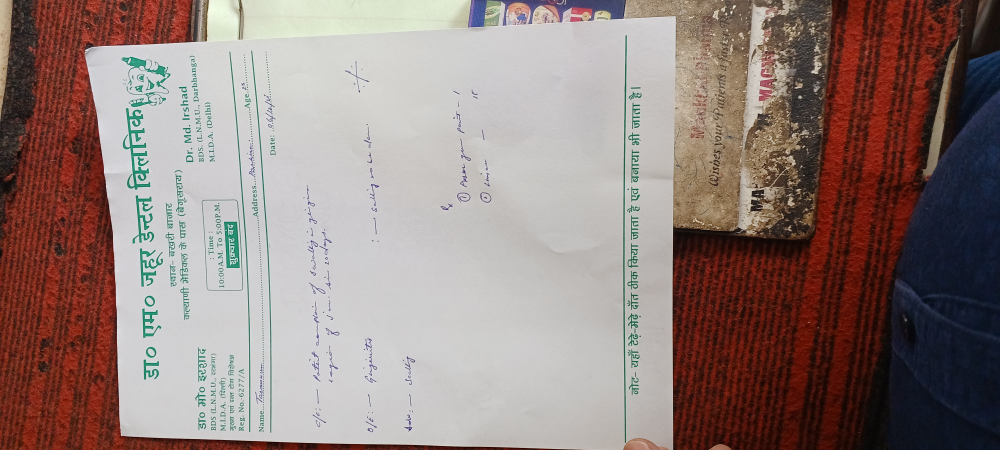 डा० एम० जहूर डेन्टल क्लिनिक
स्थान- बखरी बाजार
कल्याणी मेडिकल के पास (बेगूसराय)
डा० मो० इरशाद
BDS (L.N.M.U., दरभंगा)
M.I.D.A. (दिल्ली)
मुख एवं दन्त रोग विशेषज्ञ
Reg. No.-6277/A
: Time :
10:00A.M. To 5:00P.M.
शुक्रवार बंद
Dr. Md. Irshad
BDS. (L.N.M.U., Darbhanga)
M.I.D.A. (Delhi)
Name Address Age
Date:
C/C: — Patient complain of swelling in gingiva
region of since 20 days.
O/E: — Gingivitis : — Scaling
Adv: — Scaling
Rx
① gum paint - 1
② — 15
नोट- यहाँ टेढ़े-मेढ़े दाँत ठीक किया जाता है एवं बनाया भी जाता है।
Wishes your Guests a
MAGN